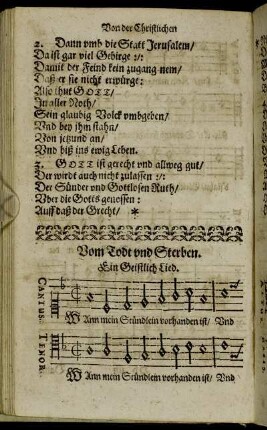 Von der Christlichen
2. Dann vmb die Statt Jerusalem/
Da ist gar viel Gebirge :/:
Damit der Feind kein zugang nem/
Daß er sie nicht erwürge:
Also thut GOTT/
In aller Noth/
Sein glaubig Volck vmbgeben/
Vnd bey ihm stahn/
Von jetzund an/
Vnd biß ins ewig Leben.
3. GOTT ist gerecht vnd allweg gut/
Der wirdt auch nicht zulassen :/:
Der Sünder vnd Gottlosen Ruth/
Vber die Gotts genossen:
Auff daß der Grecht/ *
Vom Todt vnd Sterben.
Ein Geistlich Lied.
CANTUS.
WAnn mein Stündlein vorhanden ist/ Vnd
TENOR.
WAnn mein Stündlein vorhanden ist/ Vnd